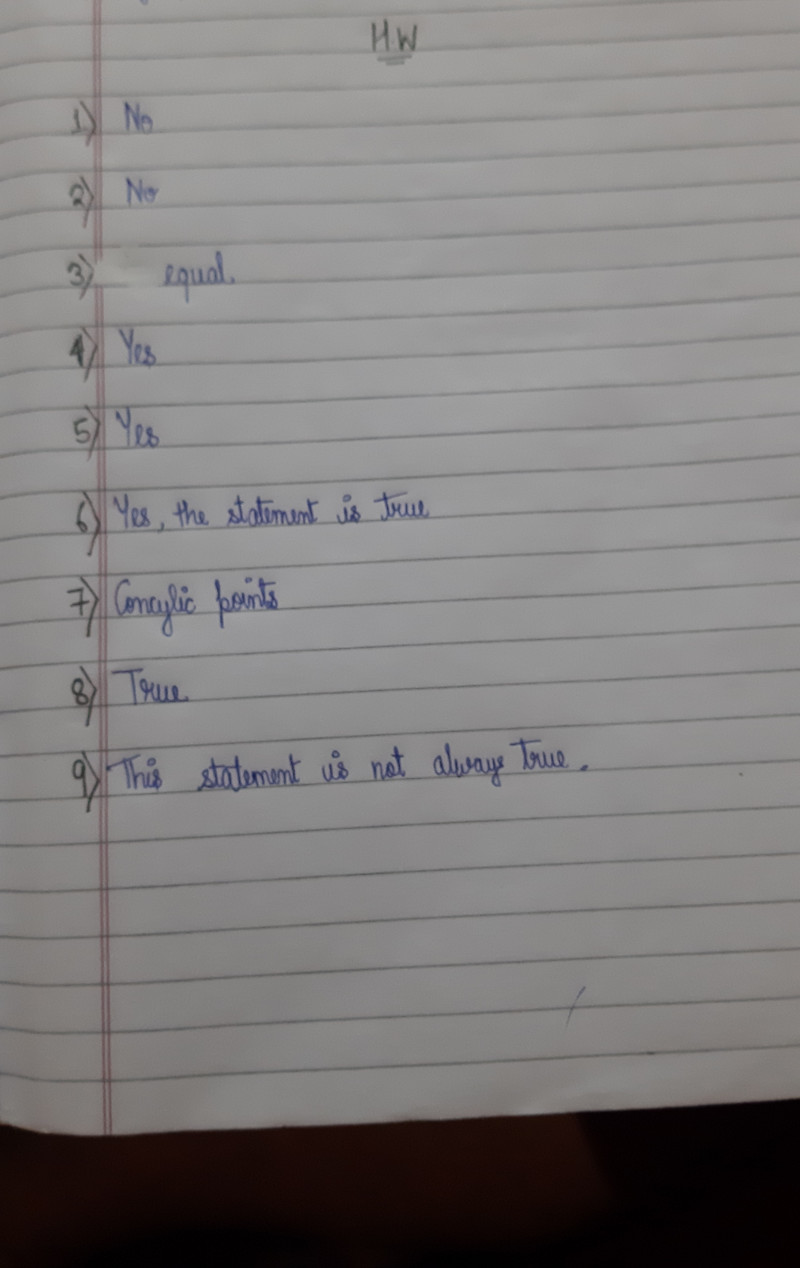 HW
1) No
2) No
3) equal.
4) Yes
5) Yes
6) Yes, the statement is true
7) Concylic points
8) True
9) This statement is not always true.